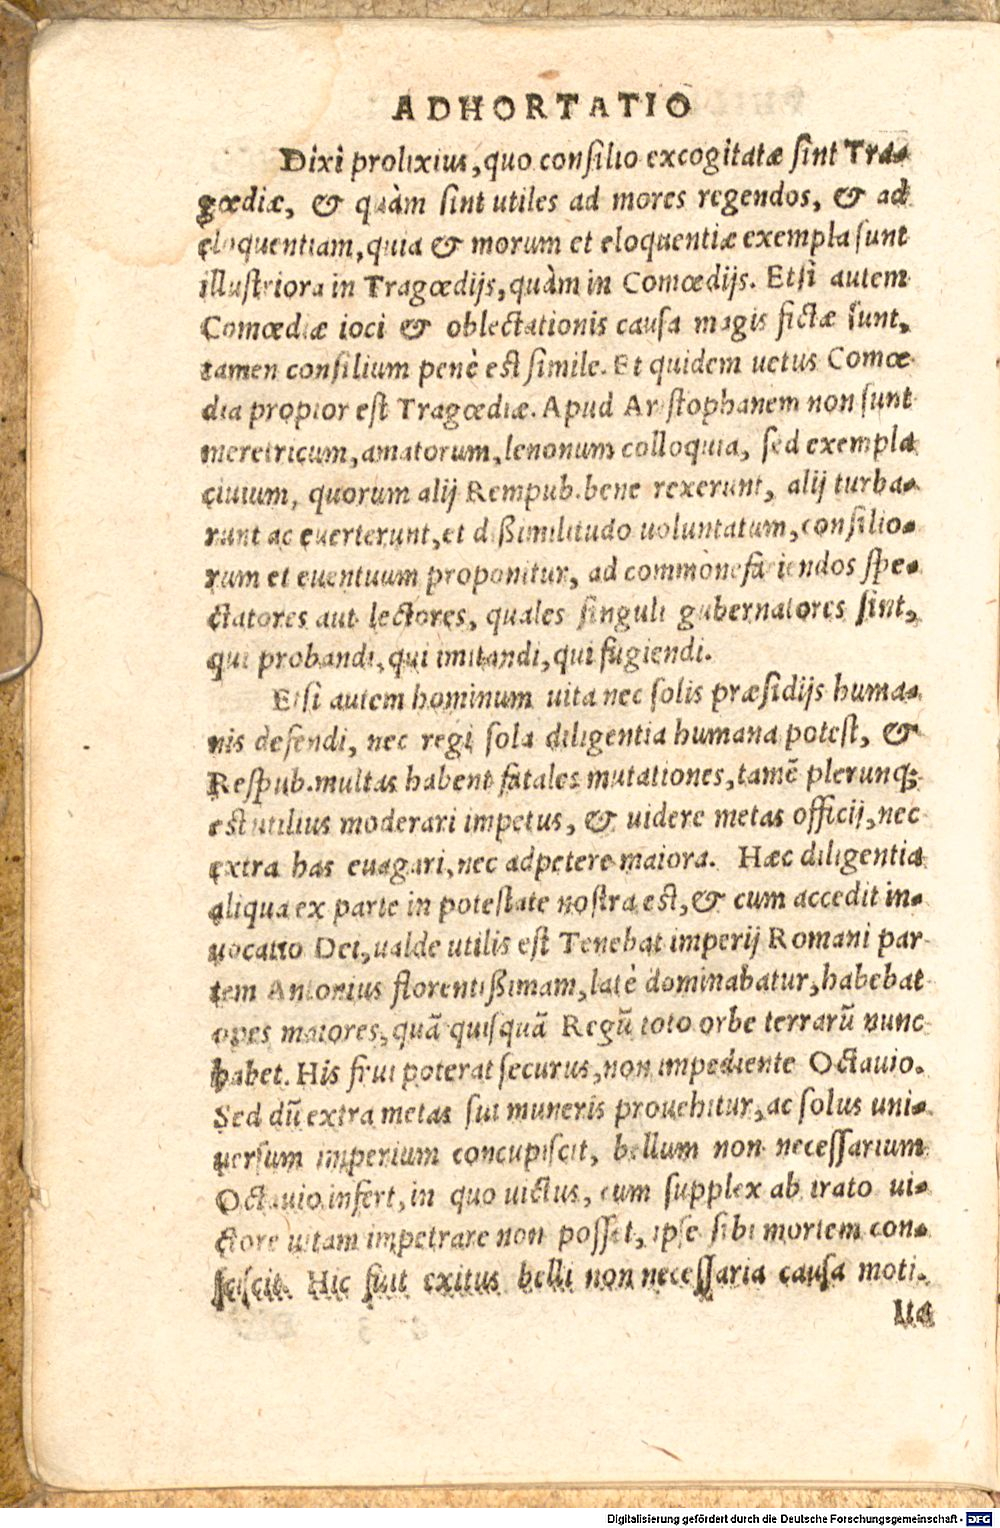 ADHORTATIO
Dixi prolixius, quo consilio excogitatæ sint Tra-
gœdiæ, & quàm sint utiles ad mores regendos, & ad
eloquentiam, quia & morum et eloquentiæ exempla sunt
illustriora in Tragœdijs, quàm in Comœdijs. Etsi autem
Comœdiæ ioci & oblectationis causa magis fictæ sunt,
tamen consilium penè est simile. Et quidem uetus Comœ
dia propior est Tragœdiæ. Apud Aristophanem non sunt
meretricum, amatorum, lenonum colloquia, sed exempla
ciuium, quorum alij Rempub. bene rexerunt, alij turba-
runt ac euerterunt, et dißimilitudo uoluntatum, consilio-
rum et euentuum proponitur, ad commonefaciendos spe-
ctatores aut lectores, quales singuli gubernatores sint,
qui probandi, qui imitandi, qui fugiendi.
Etsi autem hominum uita nec solis præsidijs huma-
nis defendi, nec regi sola diligentia humana potest, &
Respub. multas habent fatales mutationes, tamẽ plerunq;
est utilius moderari impetus, & uidere metas officij, nec
extra has euagari, nec adpetere maiora. Hæc diligentia
aliqua ex parte in potestate nostra est, & cum accedit in-
uocatio Dei, ualde utilis est Tenebat imperij Romani par
tem Antonius florentißimam, latè dominabatur, habebat
opes maiores, quã quisquã Regũ toto orbe terrarũ nunc
habet. His frui poterat securus, non impediente Octauio.
Sed dũ extra metas sui muneris prouehitur, ac solus uni-
uersum imperium concupiscit, bellum non necessarium
Octauio infert, in quo uictus, cum supplex ab irato ui-
ctore uitam impetrare non posset, ipse sibi mortem con-
sciscit. Hic fuit exitus belli non necessaria causa moti.
Ita
Digitalisierung gefördert durch die Deutsche Forschungsgemeinschaft - DFG